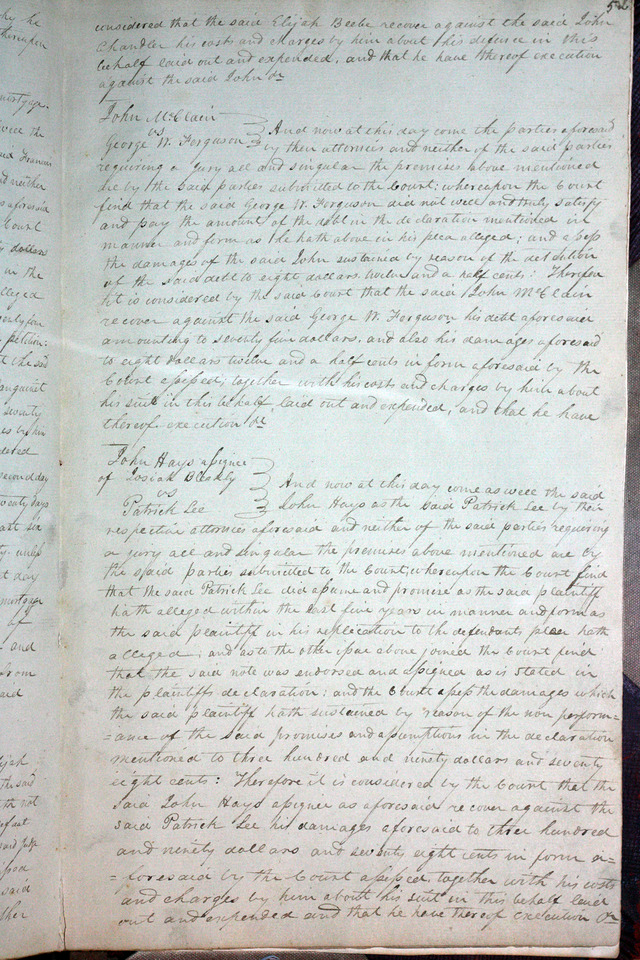 52
considered that the said Elijah Beebe recover against the said John
Chandler his costs and charges by him about his defence in this
behalf laid out and expended, and that he have thereof execution
against the said John &c
John McClain
vs
George W. Ferguson
And now at this day come the parties aforesaid
by their attornies and neither of the said parties
requiring a jury all and singular the premises above mentioned
are by the said parties submitted to the Court; whereupon the Court
find that the said George W. Ferguson did not well and truly satisfy
and pay the amount of the debt in the declaration mentioned in
manner and form as he hath above in his plea alleged; and assess
the damages of the said John sustained by reason of the detention
of the said debt to eight dollars twelve and a half cents: Therefore
it is considered by the said Court that the said John McClain
recover against the said George W. Ferguson his debt aforesaid
amounting to seventy five dollars, and also his damages aforesaid
to eight dollars twelve and a half cents in form aforesaid by the
Court assessed, together with his costs and charges by him about
his suit in this behalf, laid out and expended, and that he have
thereof execution &c
John Hays assignee
of Josiah Bleakly
vs
Patrick Lee
And now at this day come as well the said
John Hays as the said Patrick Lee by their
respective attornies aforesaid and neither of the said parties requiring
a jury all and singular the premises above mentioned are by
the said parties submitted to the Court; whereupon the Court find
that the said Patrick Lee did assume and promise as the said plaintiff
hath alleged within the last five years in manner and form as
the said plaintiff in his replication to the defendants plea hath
alleged; and as to the other issue above joined the Court find
that the said note was endorsed and assigned as is stated in
the plaintiffs declaration: and the Court assess the damages which
the said plaintiff hath sustained by reason of the non perform=
=ance of the said promises and assumptions in the declaration
mentioned to three hundred and ninety dollars and seventy
eight cents: Therefore it is considered by the Court that the
said John Hays assignee as aforesaid recover against the
said Patrick Lee his damages aforesaid to three hundred
and ninety dollars and seventy eight cents in form a=
=foresaid by the Court assessed, together with his costs
and charges by him about his suit in this behalf laid
out and expended and that he have thereof execution &c